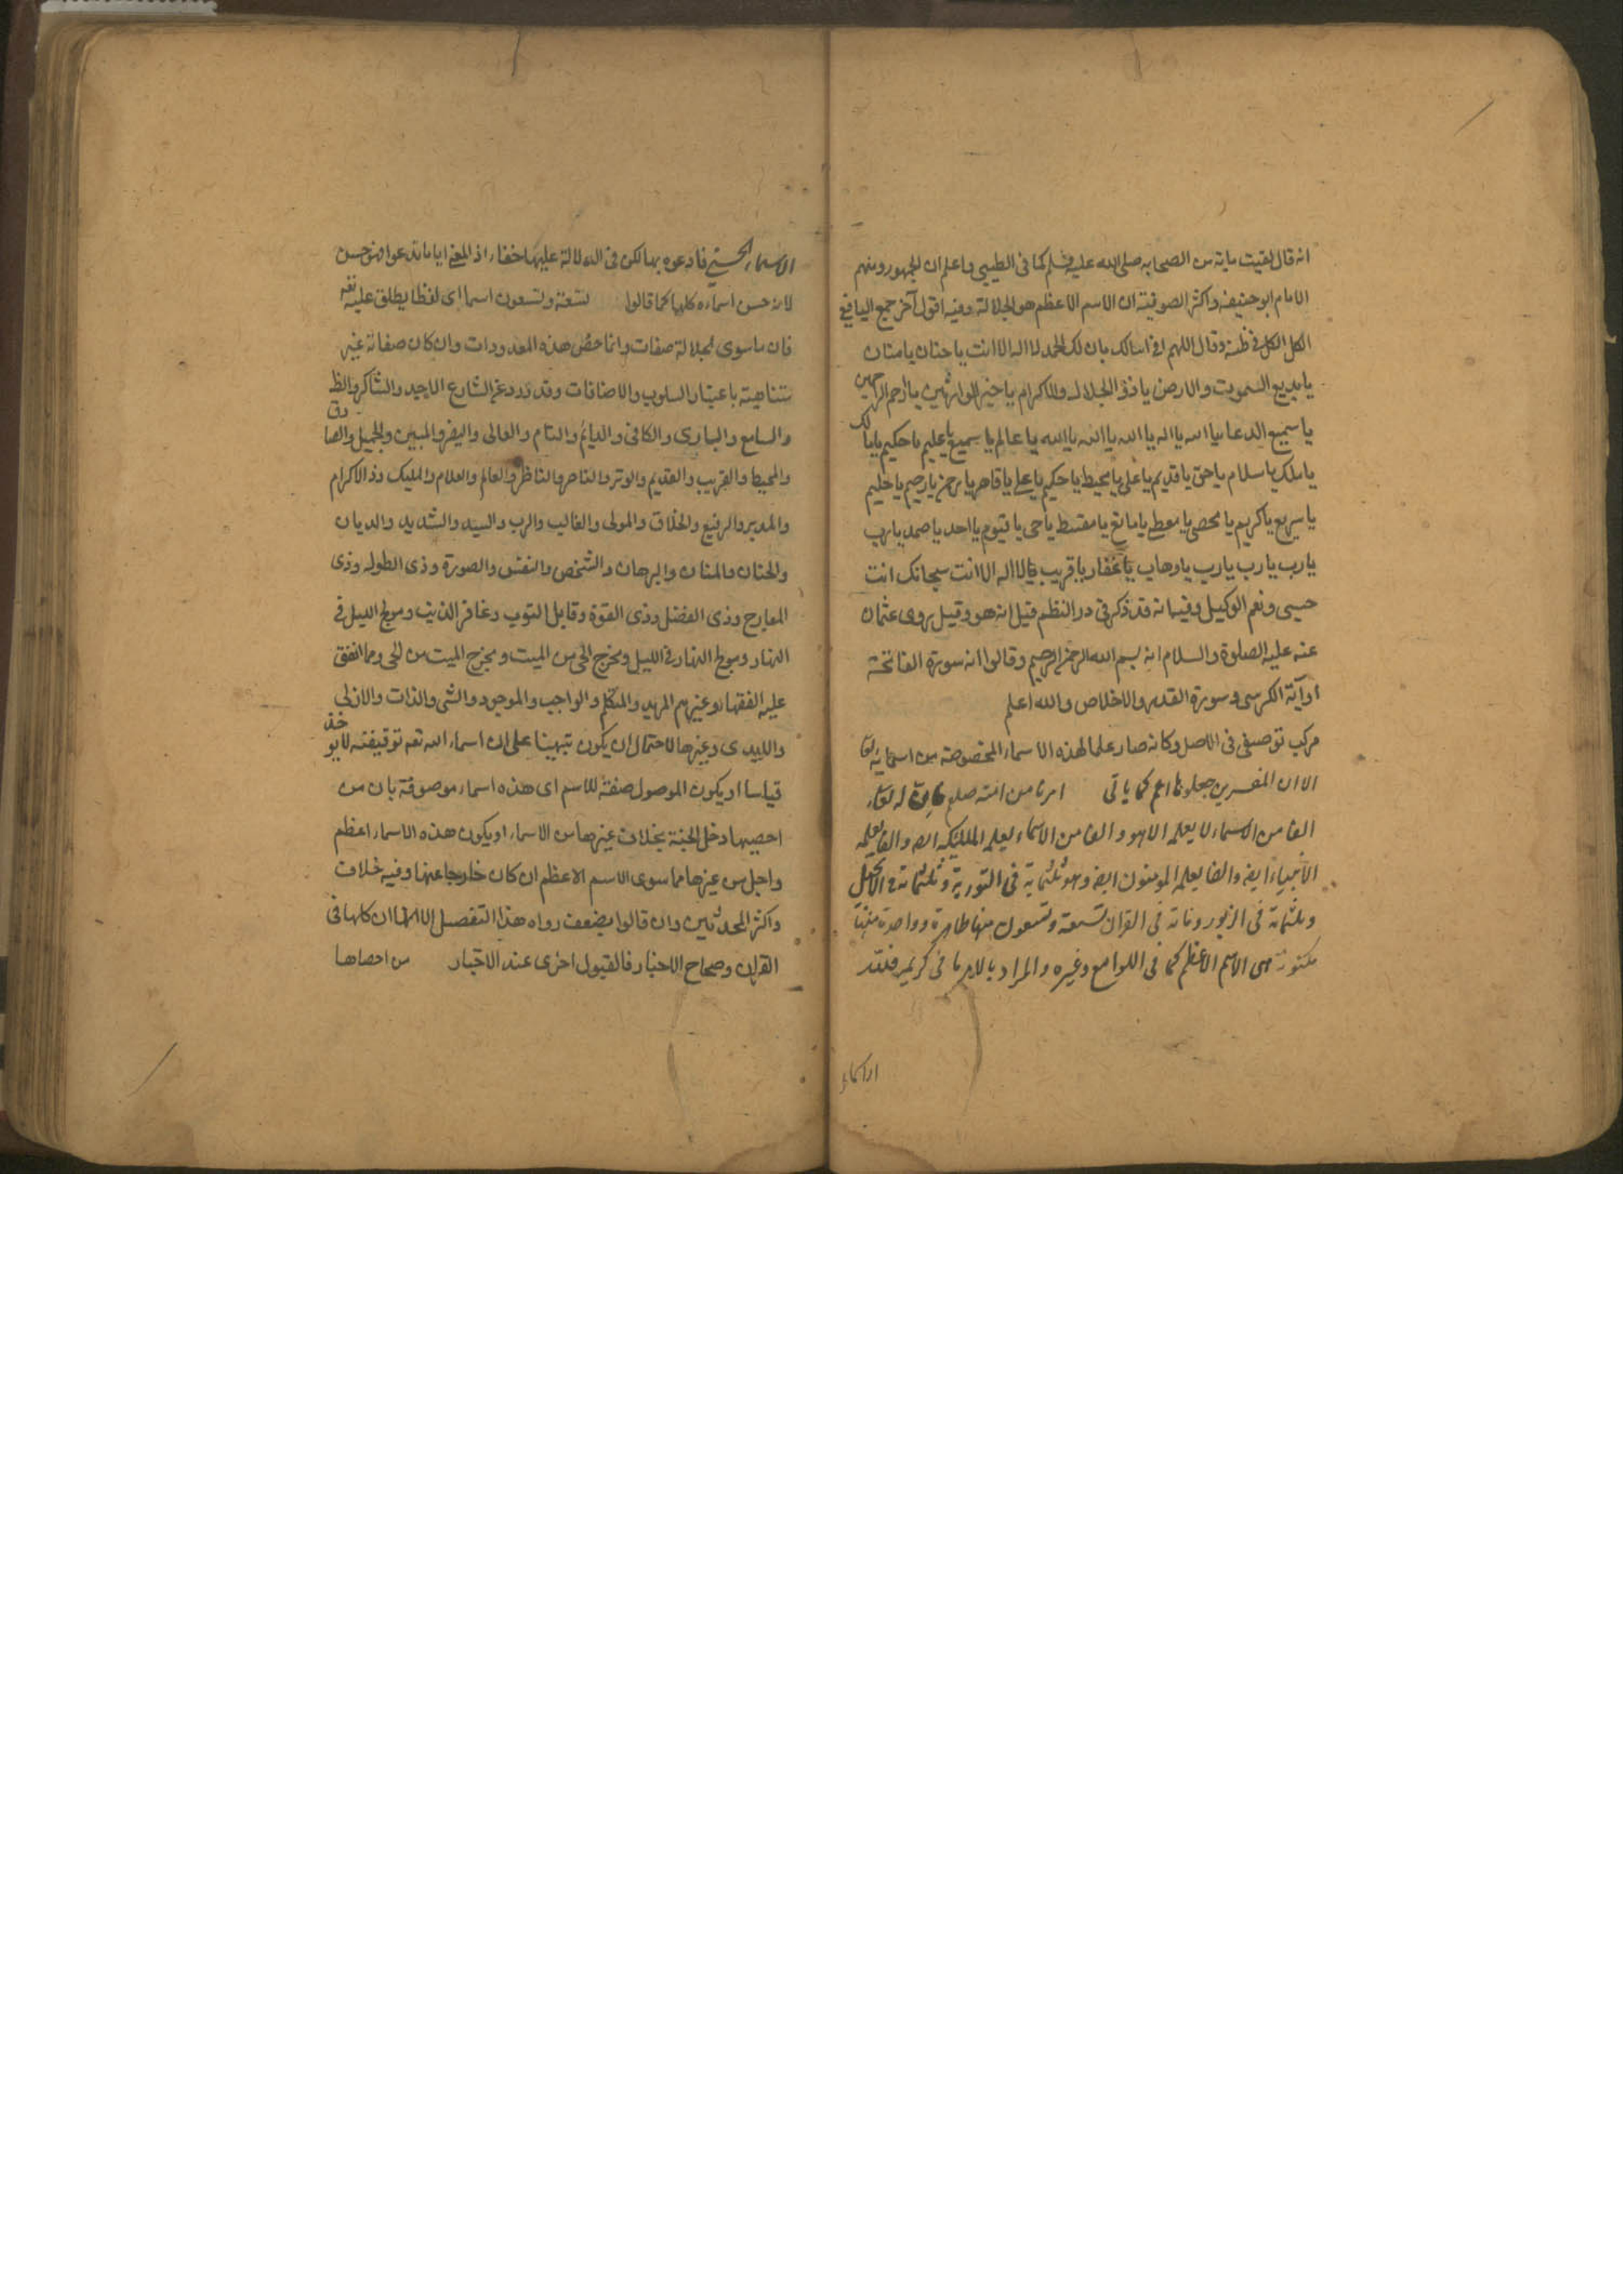 انه قال لقيت ماية من الصحابه صلى الله عليه وسلم كما فى الطيبى واعلم ان الجمهور ومنهم
الامام ابو حنيفه واكثر الصوفية ان الاسم الاعظم هو الجلالة وفيه اقول آخر جمع اليافعى
الكل الكل فى ظنه وقال اللهم انى اسالك بان لك الحمد لا اله الا انت يا حنان يا منان
يا بديع السموت والارض يا ذو الجلال والاكرام يا خير الوارثين يا ارحم الراحمين
يا سميع الدعا يا الله يا اله يا الله يا الله يا الله يا عالم يا سميع يا عليم يا حكيم يا مالك
يا ملك يا سلام يا حق يا قديم يا على يا محيط يا حكيم يا على يا قاهر يا رحمن يا رحيم يا حليم
يا سريع يا كريم يا محصى يا معطى يا مانع يا مقسط يا حى يا قيوم يا احد يا صمد يا رب
يا رب يا رب يا رب يا وهاب يا غفار يا قريب يا لا اله الا انت سبحانك انت
حسبى ونعم الوكيل وفيما نه قد ذكر فى در النظم قيل انه هو وقيل روى عثمان
عنه عليه الصلوة والسلام انه بسم الله الرحمن الرحيم وقالوا انه سورة الفاتحة
او آية الكرسى وسورة القدر والاخلاص والله اعلم
مركب توصيفى فى الاصل وكانه صار علما لهذه الاسماء المخصوصة من اسمايه تعا
الا ان المفسرين جعلوها اعم كما ياتى امرنا من امته صلعم فان له تعا
الفا من الاسماء لا يعلمه الا هو والفا من الاسماء يعلمه الملئكه ايضه والفا يعلمه
الانبياء ايضه والفا يعلمه المومنون ايضه وهو ثلثماية فى التورية وثلثماته فى الانجيل
وثلثماته فى الزبور وماته فى القران تسعة وتسعون منها ظاهرة وواحدة منها
مكتونة هى الاسم الاعظم كما فى اللوامع وغيره والمراد بالامر ما فى كريمه فلله
الاسماء
الاسماء الحسنى فادعوه بها لكن فى الدلالة عليها خفاء اذ المعنى اياما تدعوا فهو حسن
لانه حسن اسماءه كلها كما قالوا تسعة وتسعون اسما اى لفظا يطلق عليه تعه
فان ما سوى الجلالة صفات وانما خص هذه المعدودات وان كان صفاته غير
متناهية باعتبار السلوب والاضافات وقد ورد عن الشارع الاجيد والشاكر والظ
والسامع والبارى والكافى والدايم والتام والعالى واليفر والمبين والجميل والصادق
والمحيط والقريب والقديم والوتر والناصر والناظر والعالم والعلام والمليك وذ الاكرام
والمدبر والرفيع والخلاق والمولى والغالب والرب والسيد والشديد والديان
والحنان والمنان والبرهان والشخص والنفس والصورة وذى الطول وذى
المعارج وذى الفضل وذى القوة وقابل التوب وغافر الذنب ومولج الليل فى
النهار ومولج النهار فى الليل ومخرج الحى من الميت ومخرج الميت من الحى ومما اتفق
عليه الفقهاء وغيرهم المريد والمتكلم والواجب والموجود والشى والذات والازلى
والابدى وغيرها لاحتمال ان يكون تنبيها على ان اسماء الله تعه توقيفته لا يوخذ
قياسا او يكون الموصول صفة للاسم اى هذه اسماء موصوفة بان من
احصيها دخل الجنة بخلاف غيرها من الاسماء او يكون هذه الاسماء اعظم
واجل من غيرها مما سوى الاسم الاعظم ان كان خارجا عنها وفيه خلاف
واكثر المحدثين وان قالوا بضعف رواه هذا التفصيل الا انها ان كلها فى
القران وصحاح الاخبار فالقبول احرى عند الاختبار من احصاها